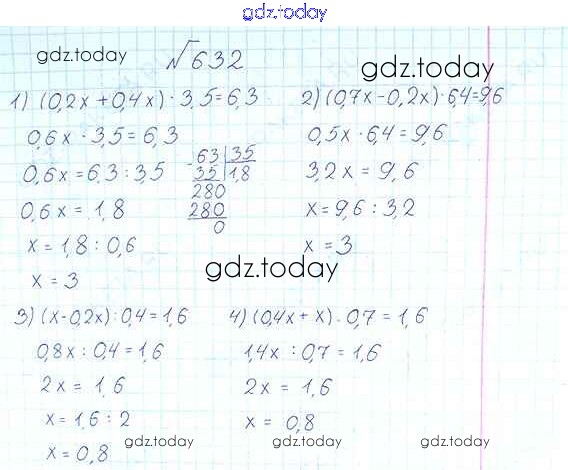 gdz.today
gdz.today
№632
gdz.today
1) (0,2x + 0,4x) · 3,5 = 6,3
0,6x · 3,5 = 6,3
0,6x = 6,3 : 3,5
63 | 35
35 | 1,8
280
280
0
0,6x = 1,8
x = 1,8 : 0,6
x = 3
2) (0,7x - 0,2x) · 6,4 = 9,6
0,5x · 6,4 = 9,6
3,2x = 9,6
x = 9,6 : 3,2
x = 3
gdz.today
3) (x - 0,2x) : 0,4 = 1,6
0,8x : 0,4 = 1,6
2x = 1,6
x = 1,6 : 2
x = 0,8
4) (0,4x + x) · 0,7 = 1,6
1,4x : 0,7 = 1,6
2x = 1,6
x = 0,8
gdz.today
gdz.today
gdz.today